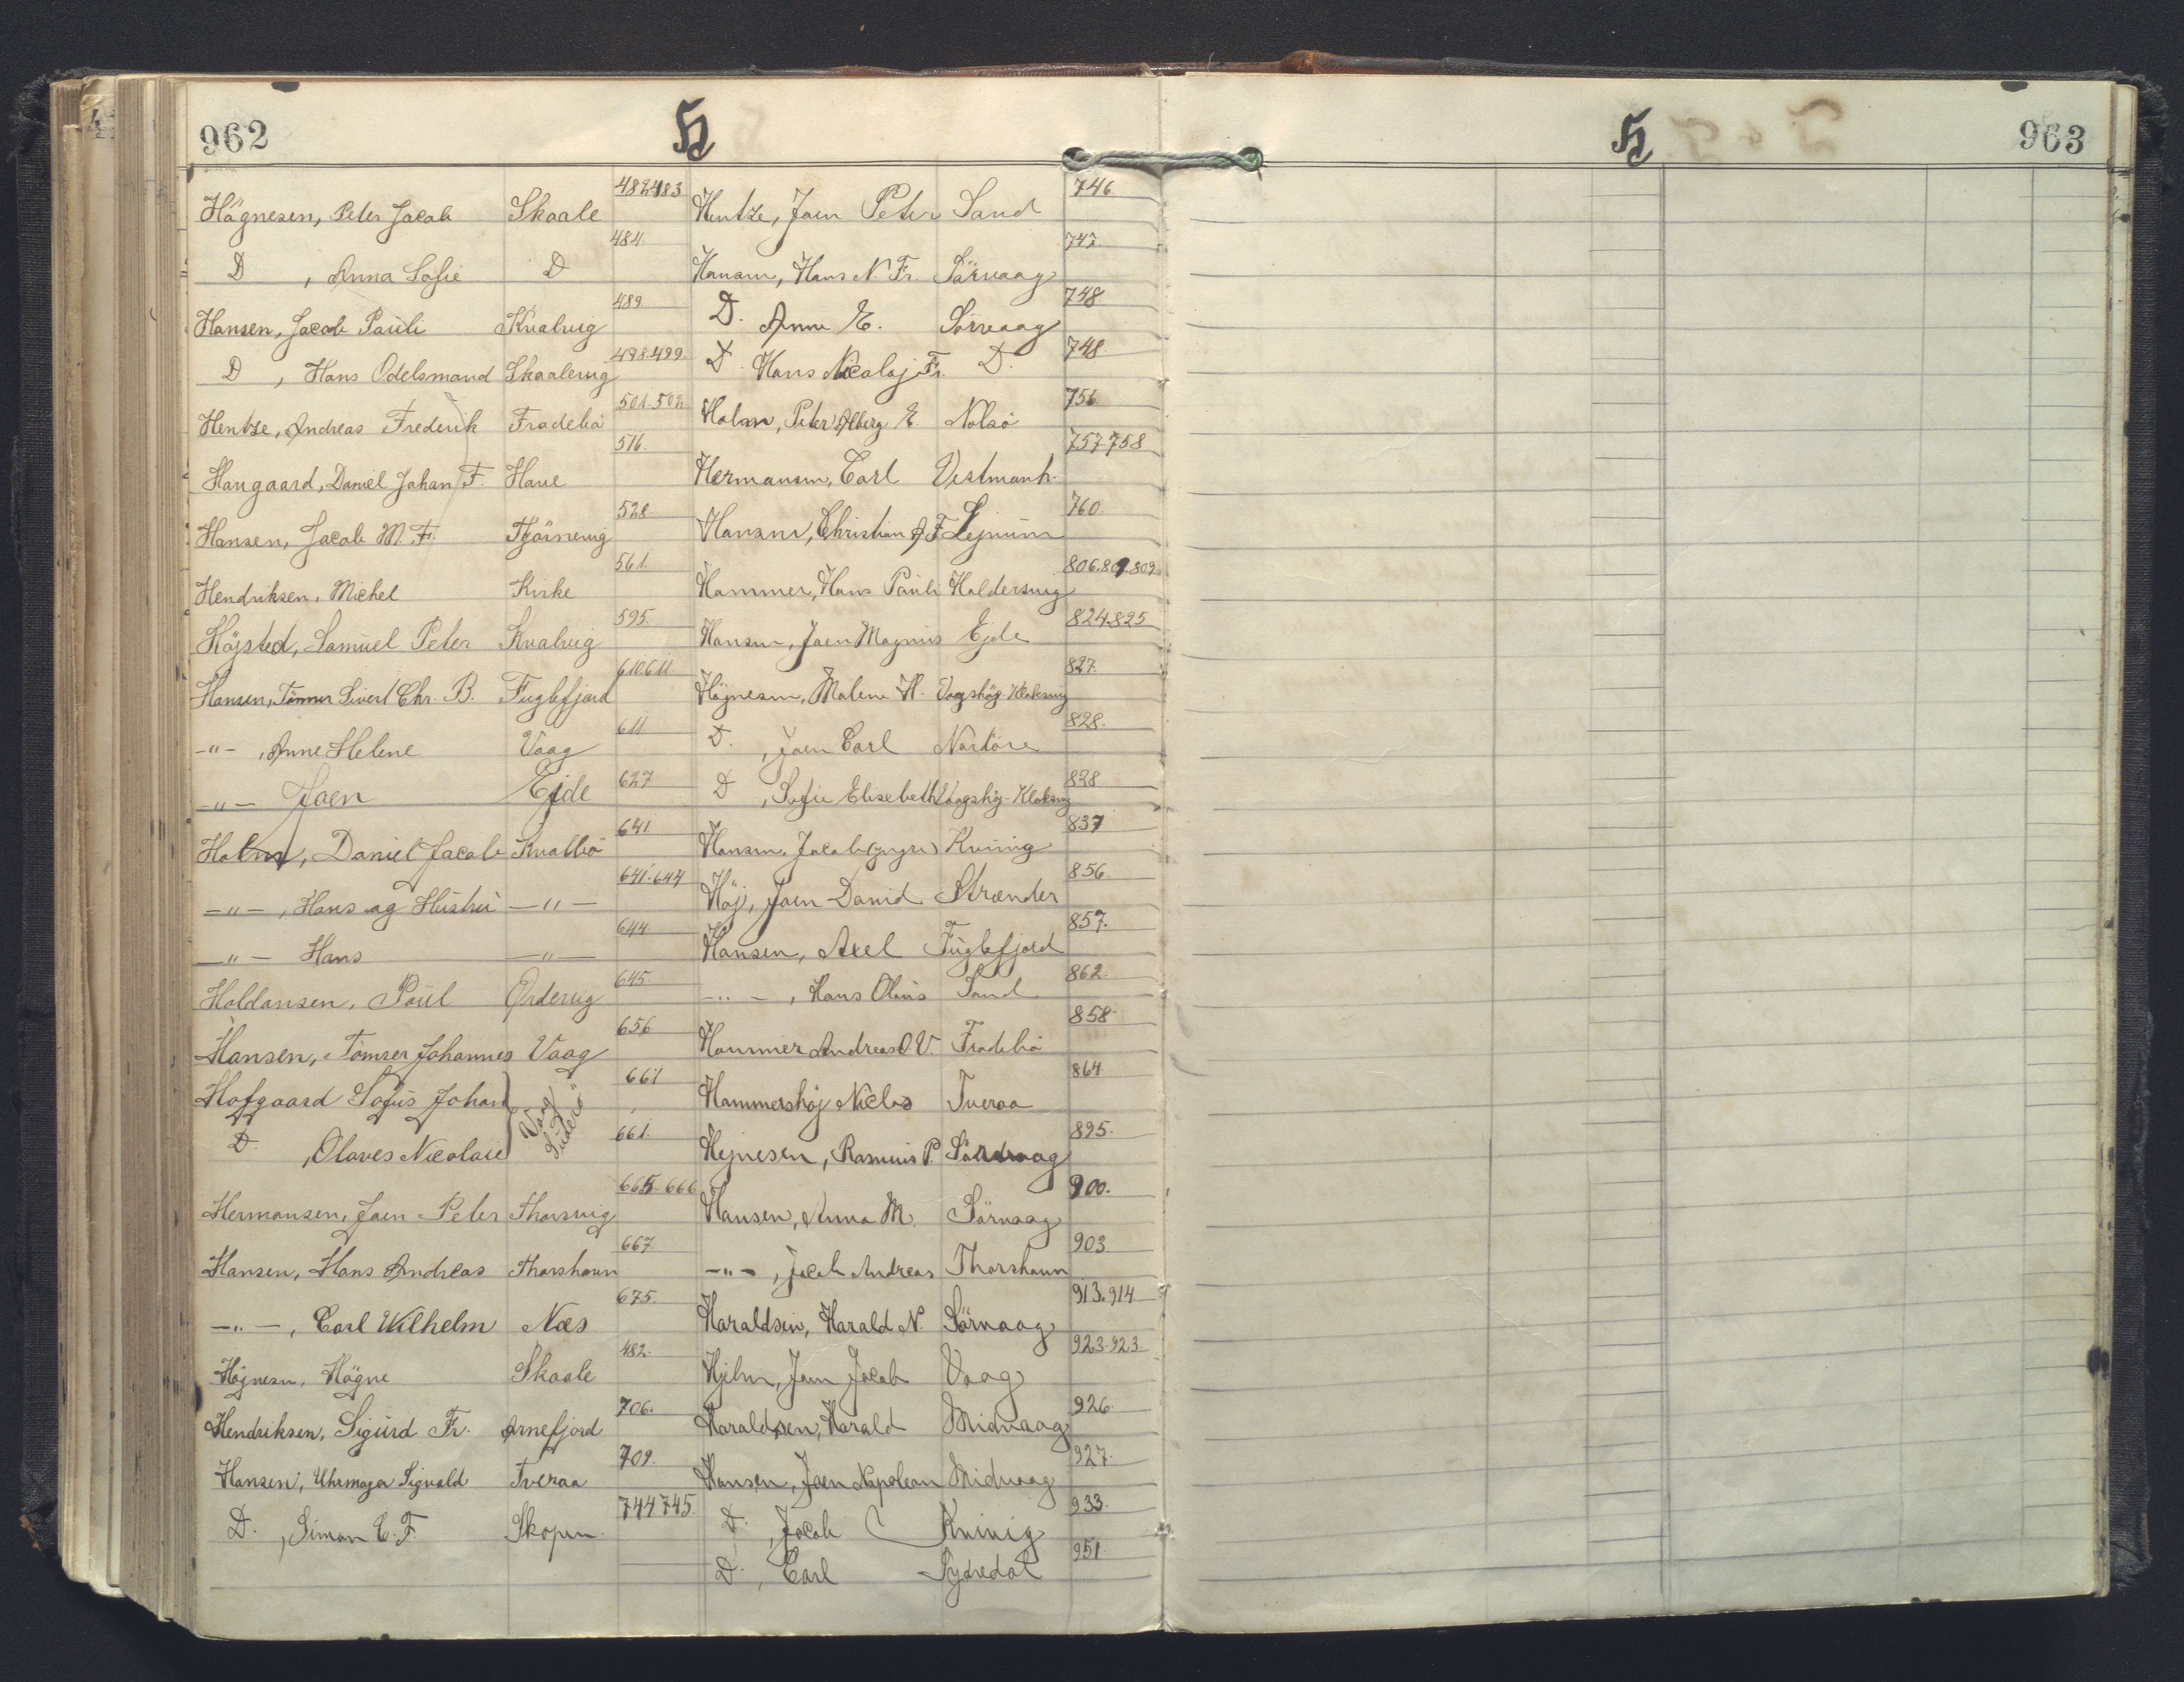 962
H
Högnesen, Peter Jacob Skaale 482483
D , Anna Sofie D 484.
Hansen, Jacob Pauli Kvalvig 489
D , Hans Odelsmand Skaalevig 498.499.
Hentze, Andreas Frederik Frodebö 501.502
Haugaard, Daniel Johan F. Have 516.
Hansen, Jacob M. F. Tjörnevig 528.
Hendriksen, Michel Kirke 561.
Höjsted, Samuel Peter Kvalvig 595.
Hansen, Tömrer Sivert Chr. B. Fuglefjord 610.611.
-"- , Anne Helene Vaag 611
-"- Joen Ejde 627
Holm, Daniel Jacob Kvalbö 641
-"- , Hans og Hustru -"- 641.644
-"- Hans -"- 644.
Haldansen, Poul Ordevig 645.
Hansen, Tömrer Johannes Vaag 656
Hofgaard Sofus Johan 661
Vaag Suderö
D. , Olaves Nicolaie 661.
Hermansen, Joen Peter Thorsvig 665.666
Hansen, Hans Andreas Thorshavn 667.
-"- , Carl Wilhelm Næs 675.
Högnesen, Högne Skaale 482.
Hendriksen, Sigurd Fr. Arnefjord 706.
Hansen, Uhrmager Sigvald Tveraa 709.
D. , Simon E. F. Skopen. 744 745.
Hentze, Joen Peter Sand 746.
Hansen, Hans N. Fr. Sörvaag 747.
D. Anne E. Sörvaag 748
D. Hans Nicolaj Fr. D. 748.
Holm, Peter Alberg E. Nolsö 756
Hermansen, Carl Vestmanh. 757.758
Hansen, Christian A F Lejnum 760.
Hammer, Hans Pauli Haldersvig 806.809.809.
Hansen, Joen Magnus Ejde 824.825
Högnesen, Malene H. Vaagshöj-Klaksvig 827.
D. , Joen Carl Nordöre 828.
D , Sofie Elisebeth Vaagshöj-Klaksvig 828
Hansen, Jacob (yngre) Kvivig 837
Höj, Joen David Strænder 856
Hansen, Axel Fuglefjord 857.
-"- , Hans Olaus Sand 862.
Hammer Andreas O.V. Frodebö 858
Hammershöj Niclas Tveraa 864
Hejnesen, Rasmus P. Sandvaag 895.
Hansen, Anna M. Sörvaag 900.
-"- , Jacob Andreas Thorshavn 903
Haraldsen, Harald N. Sörvaag 913.914
Hjelm, Joen Jacob Vaag 923.923
Haraldsen, Harald Midvaag 926.
Hansen, Joen Napoleon Midvaag 927.
D. , Jacob Kvivig 933.
D. , Carl Sydredal 951.
H
963